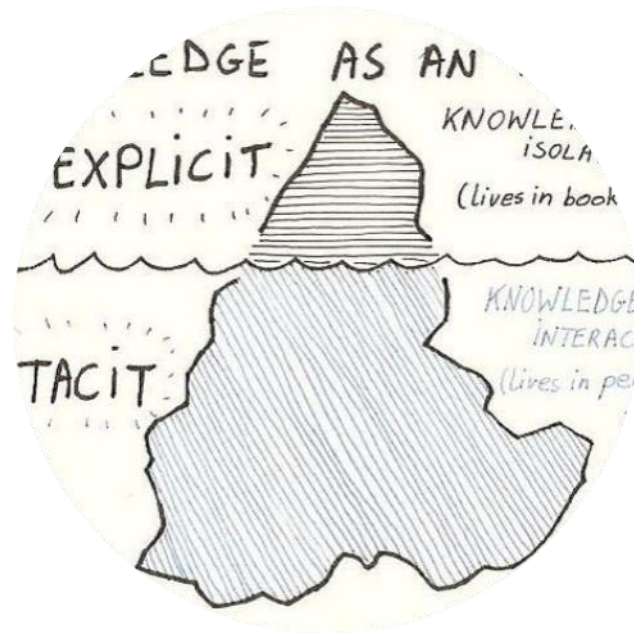 AS AN
EXPLICIT
ISOLA
(lives in book
TACIT
KNOWLEDGE
INTERAC
(lives in pe